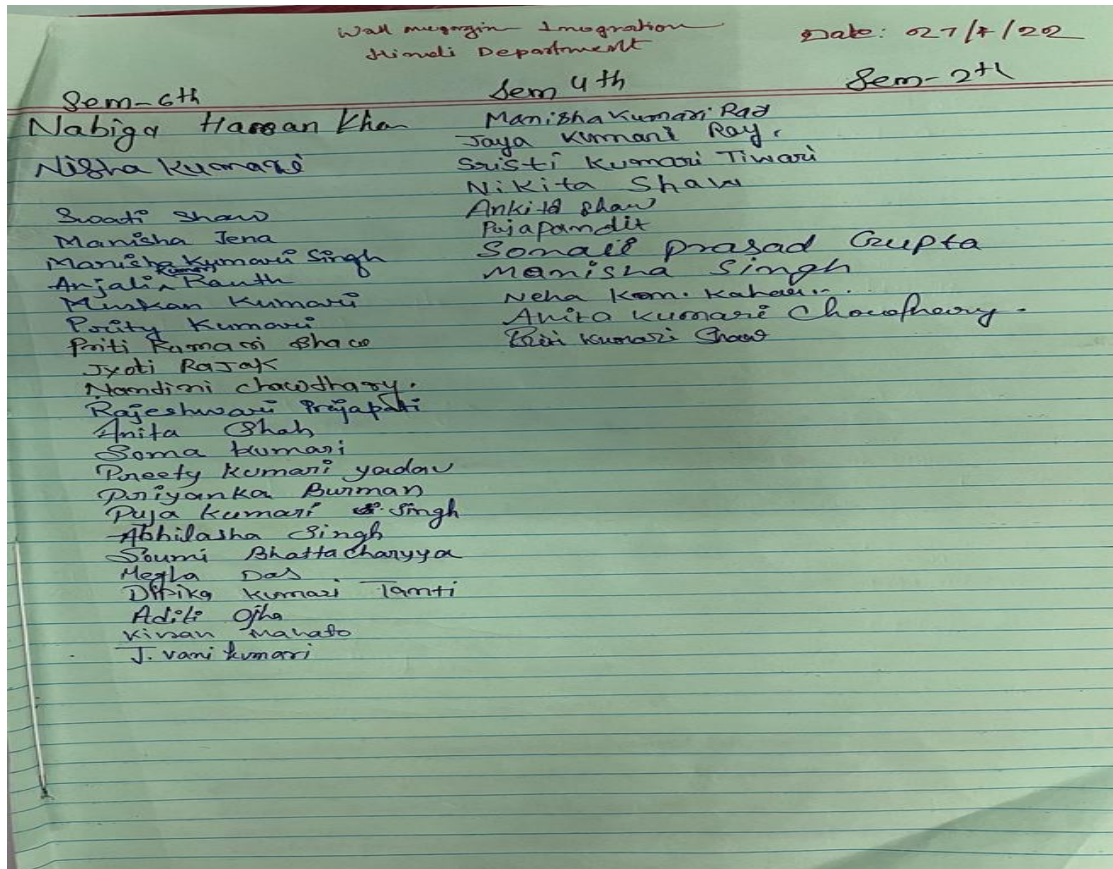 Wall megazin Inogration
Hindi Department
Date: 27/7/22
Sem-6th
Nabiga Hassan Khan
Nisha Kumari
Swati Shaw
Manisha Jena
Manisha Kumari Singh
Anjali Kumari Rauth
Muskan Kumari
Prity Kumari
Priti Kumari Shaw
Jyoti Rajak
Nandini chawdhary.
Rajeshwari Prajapati
Anita Shah
Soma Kumari
Preety Kumari yadav
Priyanka Burman
Puja Kumari Singh
Abhilasha Singh
Soumi Bhattacharyya
Megha Das
Dipika Kumari Tanti
Aditi Ojha
Kiran Mahato
J. vani kumari
Sem 4th
Manisha Kumari Rad
Jaya Kumari Ray.
Sristi Kumari Tiwari
Nikita Shaw
Ankita Shaw
Puja pandit
Sonali prasad Gupta
Manisha Singh
Neha Kum. Kahar...
Anita Kumari Chowdheary.
Kumari Shaw
Sem-2th